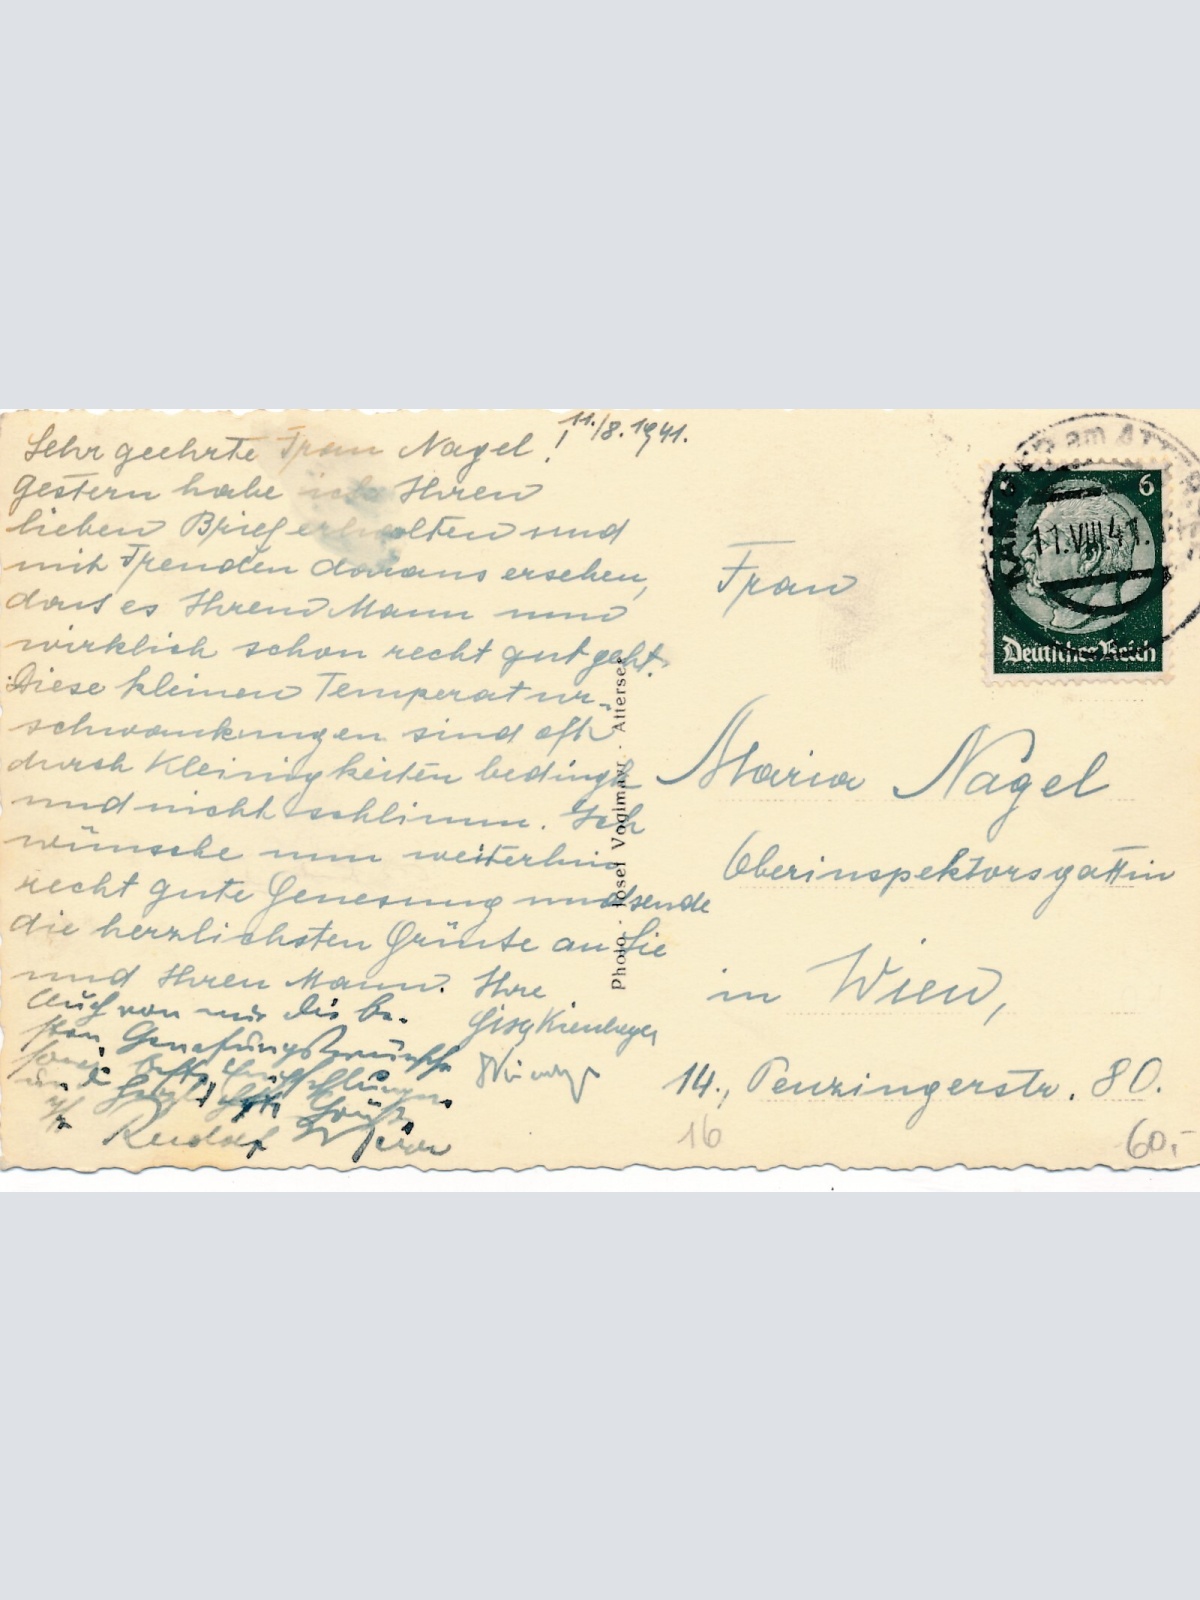 11./8.1941.
Sehr geehrte Frau Nagel!
gestern habe ich Ihren
lieben Brief erhalten und
mit Freuden daraus ersehen,
dass es Ihrem Mann nun
wirklich schon recht gut geht.
Diese kleinen Temperatur-
schwankungen sind oft
durch Kleinigkeiten bedingt
und nicht schlimm. Ich
wünsche nun weiterhin
recht gute Genesung und sende
die herzlichsten Grüsse an Sie
und Ihren Mann. Ihre
Auch von mir die be-
sten Genesungswünsche
sowie beste Empfehlungen
und herzlichste Grüße
Ihr Rudolf
Photo Josef Voglmayr · Attersee
6
11.VIII.41.
Deutsches Reich
Frau
Maria Nagel
Oberinspektorsgattin
in Wien,
14., Penzingerstr. 80.
16
60,-